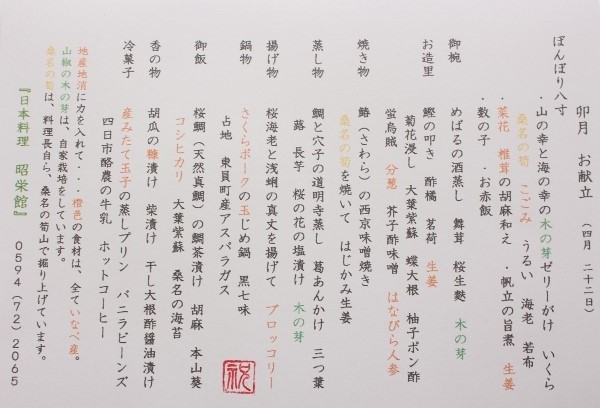 卯月 お献立 (四月 二十二日)
ぼんぼり八寸
・山の幸と海の幸の木の芽ゼリーがけ いくら
桑名の筍 こごみ うるい 海老 若布
菜花 椎茸の胡麻和え ・帆立の旨煮 生姜
・数の子 ・お赤飯
御椀 めばるの酒蒸し 舞茸 桜生麩 木の芽
お造里 鰹の叩き 酢橘 茗荷 生姜
菊花浸し 大葉紫蘇 蝶大根 柚子ポン酢
蛍烏賊 分葱 芥子酢味噌 はなびら人参
焼き物 鰆(さわら)の西京味噌焼き
桑名の筍を焼いて はじかみ生姜
蒸し物 鯛と穴子の道明寺蒸し 葛あんかけ 三つ葉
蕗 長芋 桜の花の塩漬け 木の芽
揚げ物 桜海老と浅蜊の真丈を揚げて ブロッコリー
鍋物 さくらポークの玉じめ鍋 黒七味
占地 東貝野産アスパラガス
御飯 桜鯛(天然真鯛)の鯛茶漬け 胡麻 本山葵
コシヒカリ 大葉紫蘇 桑名の海苔
香の物 胡瓜の糠漬け 柴漬け 干し大根酢醤油漬け
冷菓子 産みたて玉子の蒸しプリン バニラビーンズ
四日市酪農の牛乳 ホットコーヒー
地産地消に力を入れて・・・橙色の食材は、全ていなべ産。
山椒の木の芽は、自家栽培をしています。
桑名の筍は、料理長自ら、桑名の筍山で掘り上げています。
『日本料理 昭栄館』 0594(72)2065
祝